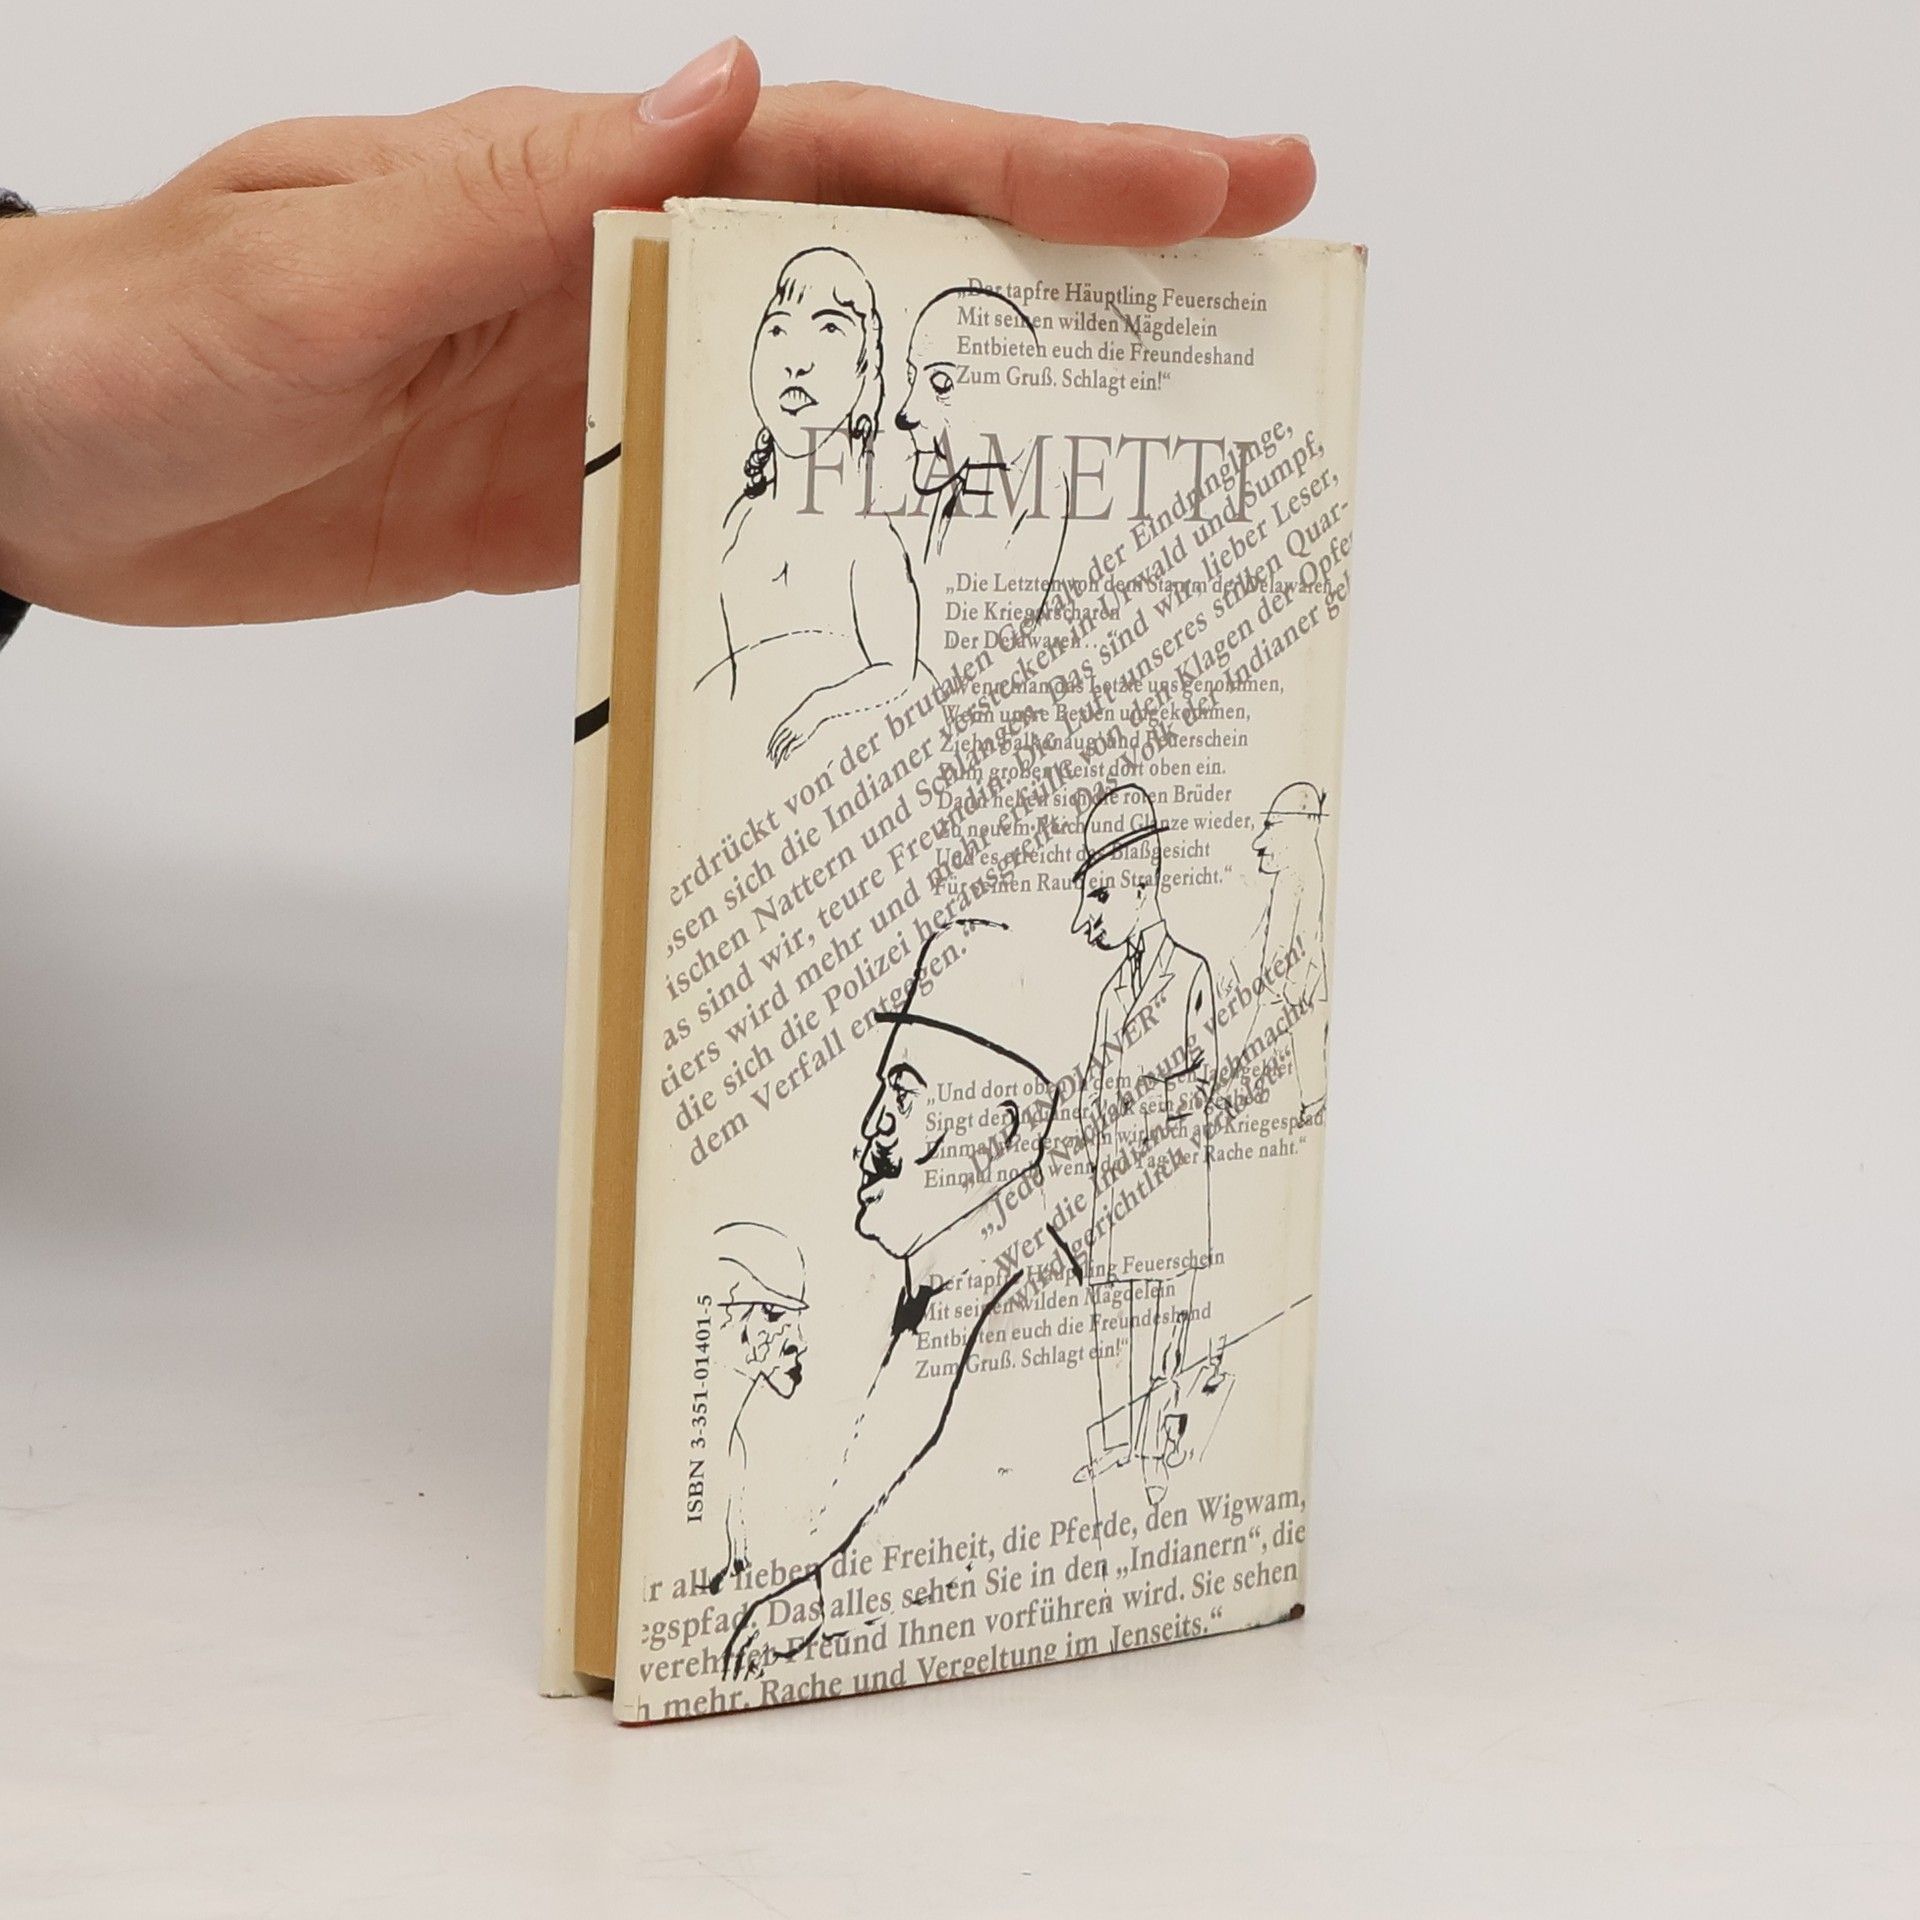 „Der tapfre Häuptling Feuerschein
Mit seinen wilden Mägdelein
Entbieten euch die Freundeshand
Zum Gruß. Schlagt ein!“
FLAMETTI
erdrückt von der brutalen Gewalt der Eindringlinge,
ssen sich die Indianer verstecken in Urwald und Sumpf,
ischen Nattern und Schlangen. Das sind wir, lieber Leser,
as sind wir, teure Freundin. Die Luft unseres stillen Quar-
tiers wird mehr und mehr erfüllt von den Klagen der Opfer
die sich die Polizei herausgreift. Das Volk der Indianer geh
dem Verfall entgegen.“
„Die Letzten von dem Stamm der Delawaren,
Die Kriegerscharen
Der Delawaren...“
„Wenn man das Letzte uns genommen,
Wenn unsre Besten umgekommen,
Ziehn Falkenaug' und Feuerschein
Zum großen Geist dort oben ein.
Dann heben sich die roten Brüder
Zu neuem Reich und Glanze wieder,
Und es erreicht das Blaßgesicht
Für seinen Raub ein Strafgericht.“
„DIE INDIANER“
„Jede Nachahmung verboten!
Wer die Indianer nachmacht,
wird gerichtlich verfolgt!“
„Und dort oben in dem ewigen Jagdgebiet
Singt der Indianer Volk sein Siegeslied.
Einmal wieder ziehn wir noch auf Kriegespfad,
Einmal noch, wenn der Tag der Rache naht.“
„Der tapfre Häuptling Feuerschein
Mit seinen wilden Mägdelein
Entbieten euch die Freundeshand
Zum Gruß. Schlagt ein!“
ISBN 3-351-01401-5
ir alle lieben die Freiheit, die Pferde, den Wigwam,
egspfad. Das alles sehen Sie in den „Indianern“, die
verehrter Freund Ihnen vorführen wird. Sie sehen
h mehr. Rache und Vergeltung im Jenseits.“